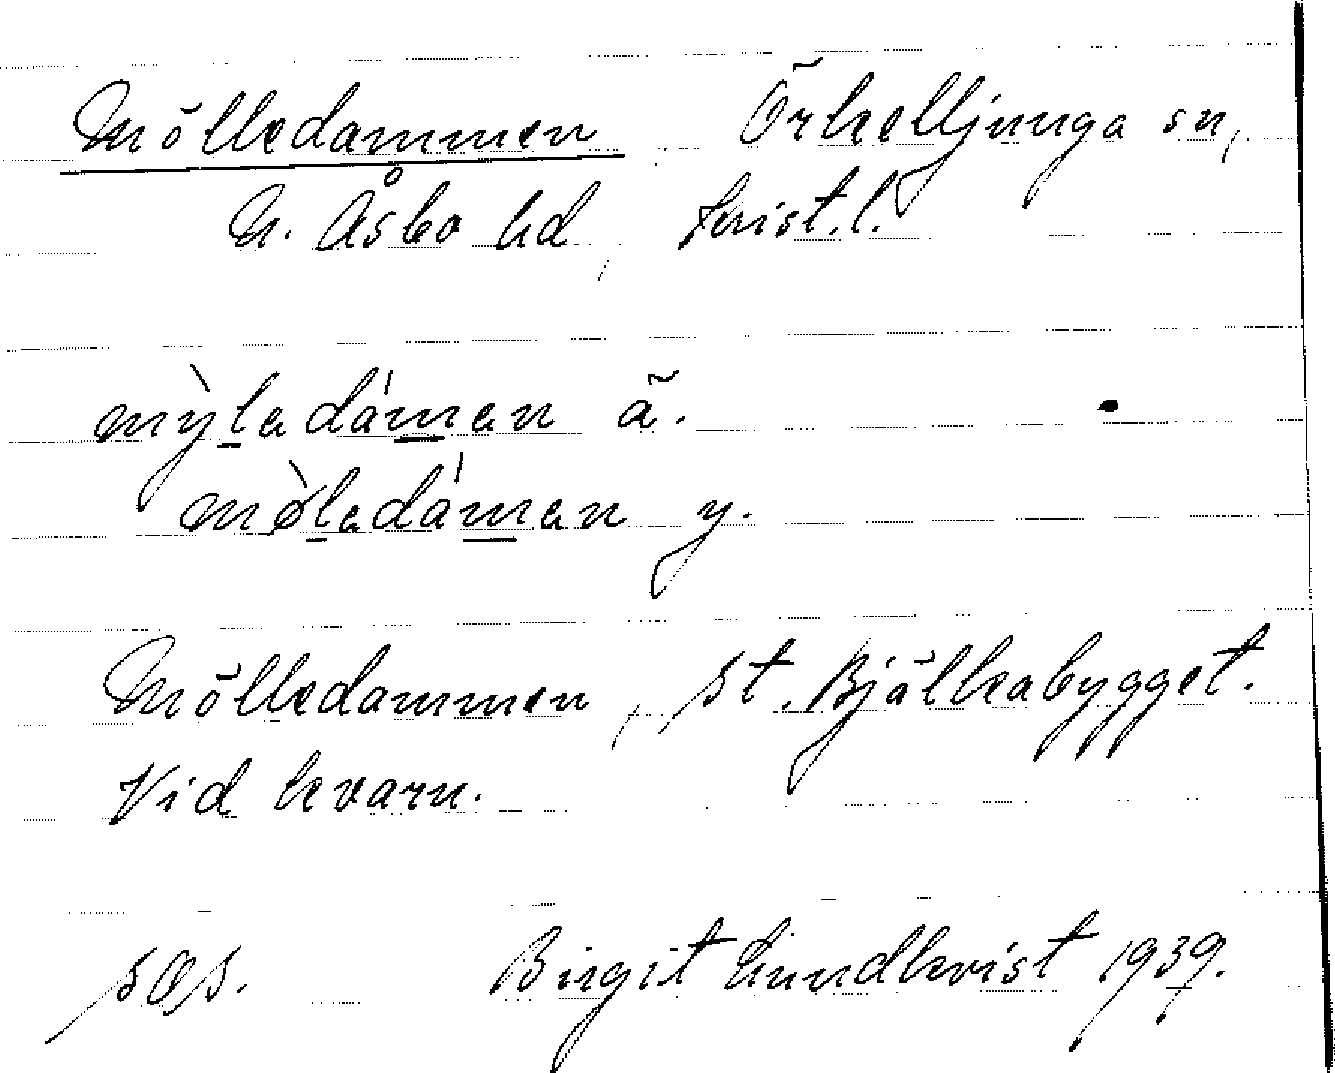 Mölledammen Örkelljunga sn,
N. Åsbo hd, Krist. l.
mỳladámen ä.
mø̀ladámen y.
Mölledammen, St. Bjälkabygget.
Vid kvarn.
SOS. Birgit Lundkvist 1939.